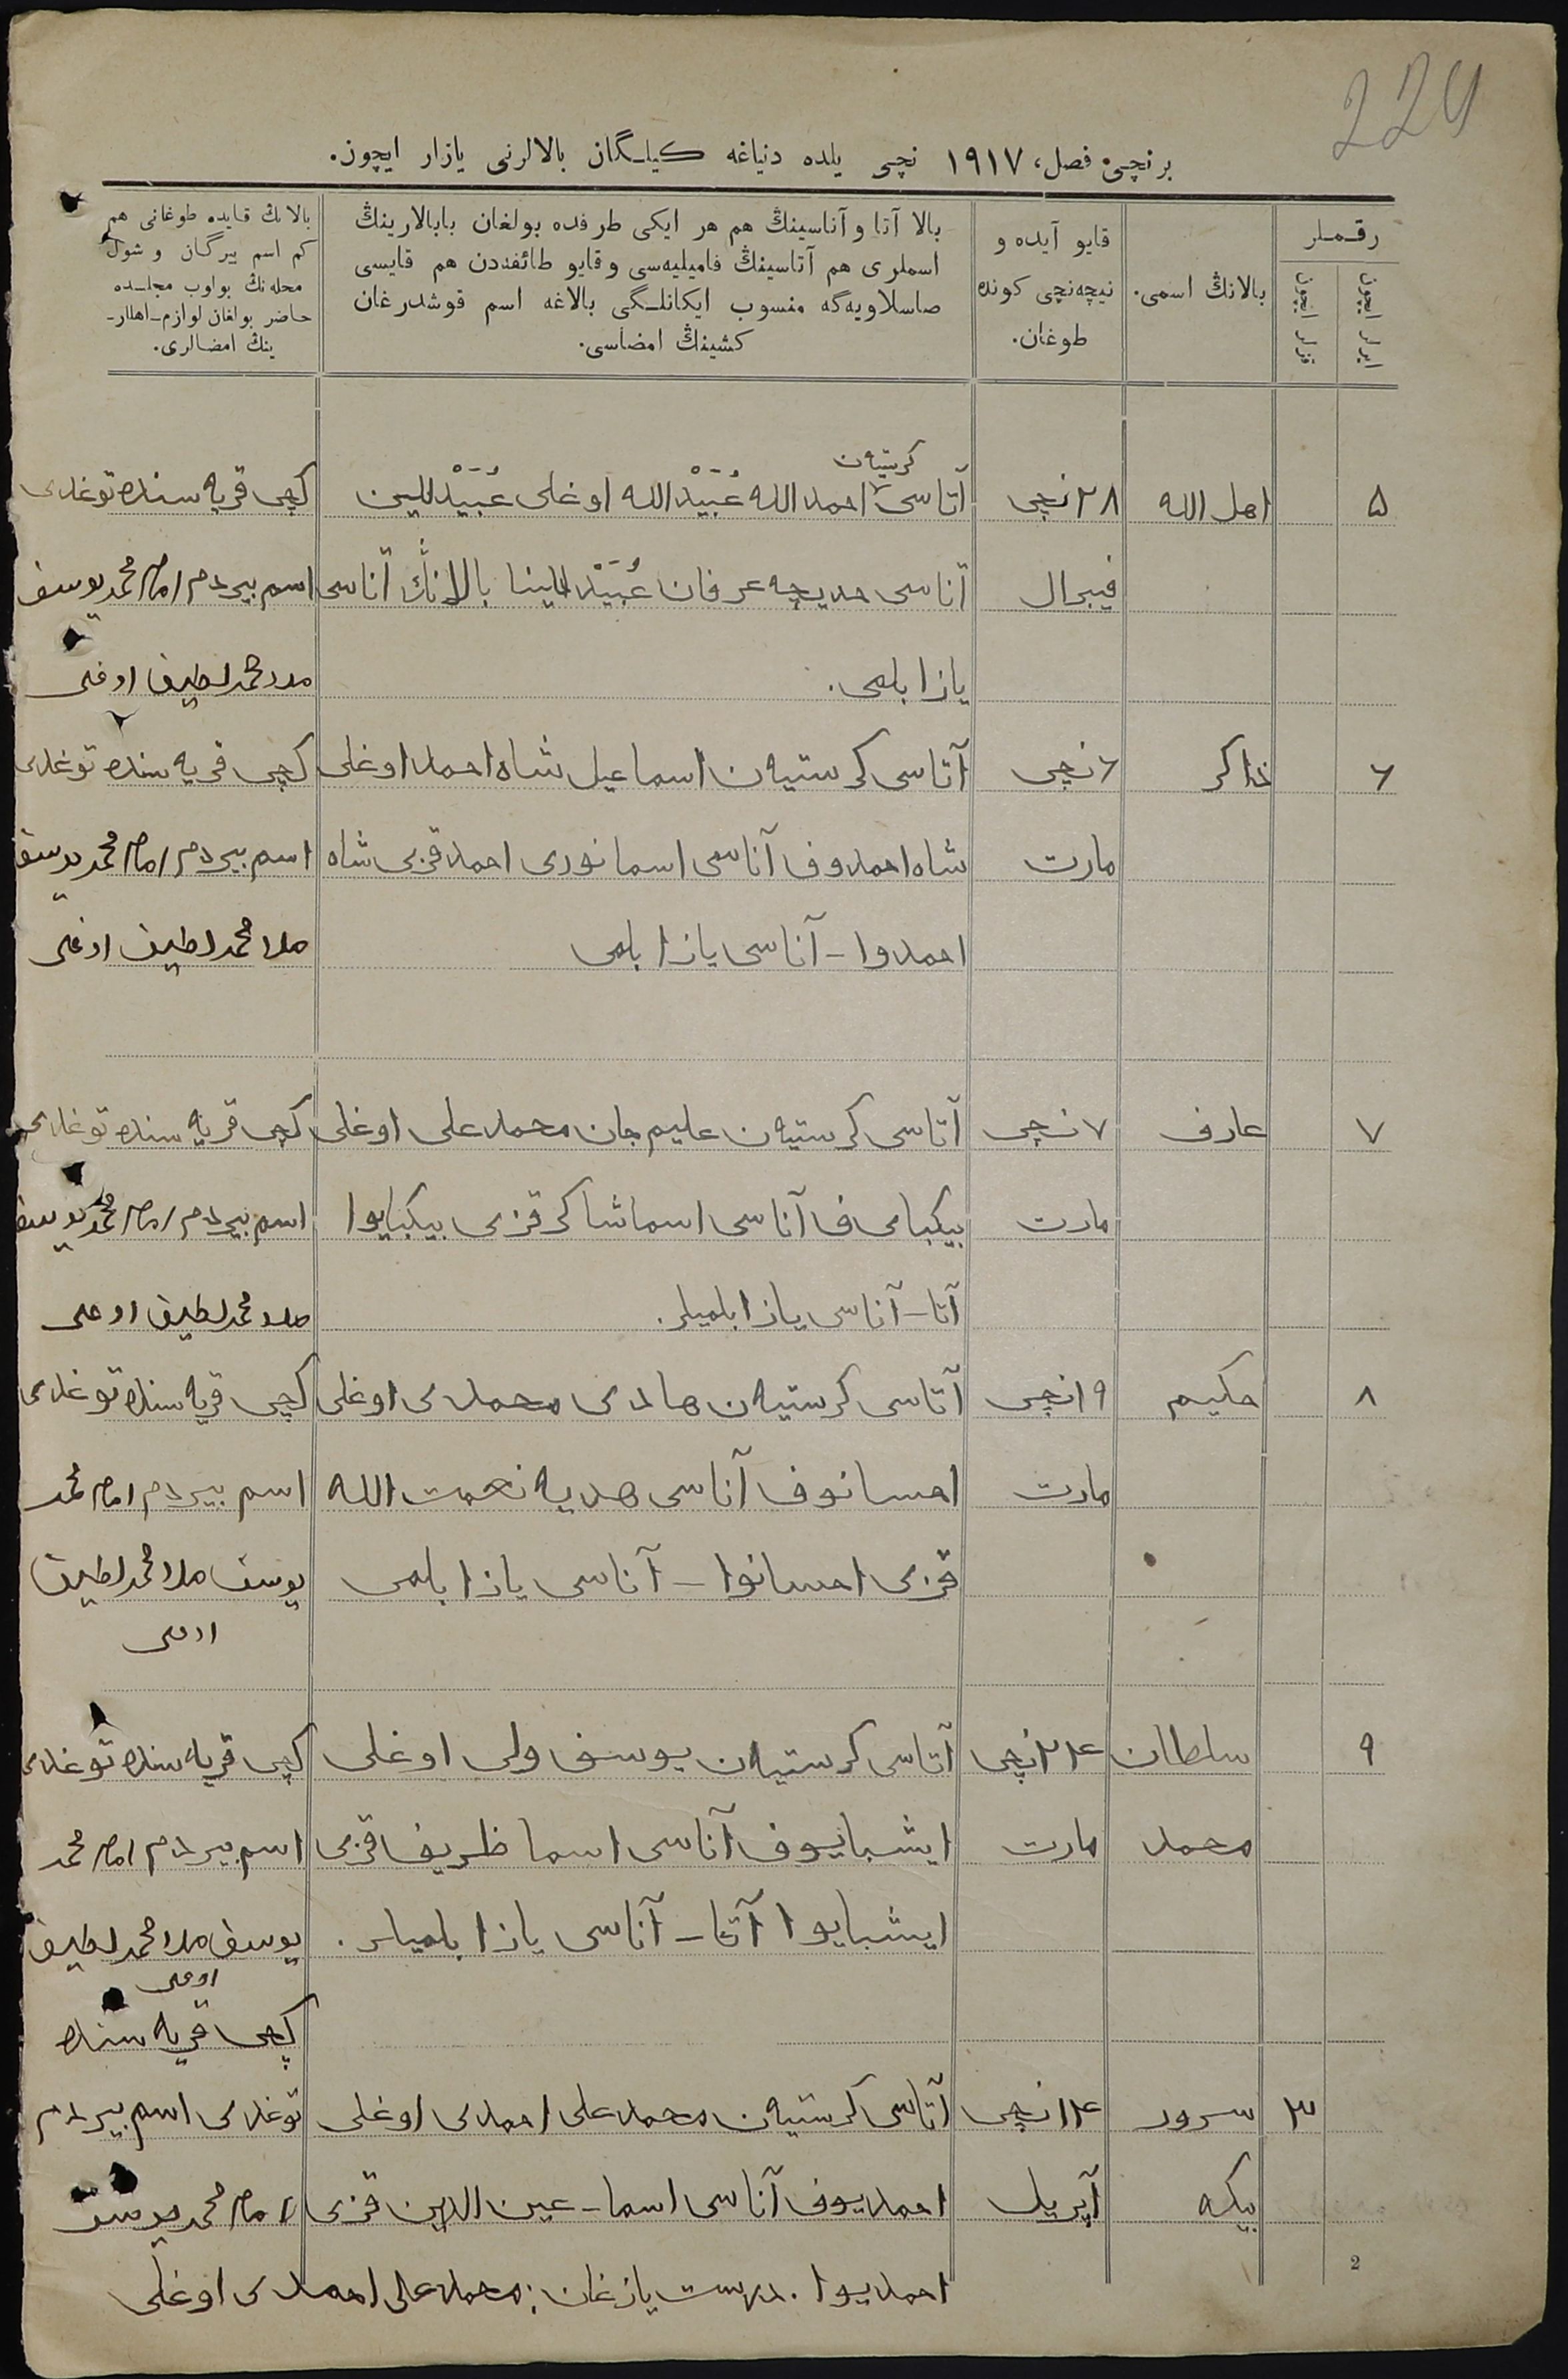 224
برنچی فصل، ۱۹۱۷ نچی یلده دنیاغه کیلـگان بالالرنی یازار ایچون.
رقـملر
ایرلر ایچون
قزلر ایچون
بالانڭ اسمی.
قایو آیده و
نیچه‌نچی کونده
طوغان.
بالا آتا و آناسینڭ هم هر ایکی طرفده بولغان بابالارینڭ
اسملری هم آتاسینڭ فامیلیه‌سی و قایو طائفه‌دن هم قایسی
صاسلاویه‌گه منسوب ایکانلـگی بالاغه اسم قوشدرغان
کشینڭ امضاسی.
بالانڭ قایده طوغانی هم
کم اسم بیرگان و شول
محله‌نڭ بواوب مجلـسده
حاضر بولغان لوازم-اهللر-
ینڭ امضالری.
کرستیەن
۵ اهل الله ۲۸ نچی آتاسی احمد الله عُبَیْدالله اوغلی عُبَیْدللین کچی قریه سنده توغدی
فیبرال آناسی خدیجه عرفان عُبَیْدللینا بالانڭ آتاسی اسم بیردم امام محمد یوسف
یازا بلمی. ملا محمد لطیف اوغلی
۶ ذاکر ۶ نچی آتاسی کرستیەن اسماعیل شاه احمد اوغلی کچی قریه سنده توغدی
مارت شاه احمدوف آناسی اسما نوری احمد قزی شاه اسم بیردم امام محمد یوسف
احمدوا - آناسی یازا بلمی ملا محمد لطیف اوغلی
۷ عارف ۷ نچی آتاسی کرستیەن علیم جان محمد علی اوغلی کچی قریه سنده توغدی
مارت بیکبای ف آناسی اسما شاکر قزی بیکبایوا اسم بیردم امام محمد یوسف
آتا - آناسی یازا بلمیلر. ملا محمد لطیف اوغلی
۸ حکیم ۱۹ نچی آتاسی کرستیەن هادی محمدی اوغلی کچی قریه سنده توغدی
مارت احسانوف آناسی هدیه نعمت الله اسم بیردم امام محمد
قزی احسانوا - آناسی یازا بلمی یوسف ملا محمد لطیف
اوغلی
۹ سلطان ۲۴ نچی آتاسی کرستیەن یوسف ولی اوغلی کچی قریه سنده توغدی
محمد مارت ایشبایوف آناسی اسما ظریف قزی اسم بیردم امام محمد
ایشبایوا آتا - آناسی یازا بلمیلر. یوسف ملا محمد لطیف
اوغلی
کچی قریه سنده
۳ سرور ۱۴ نچی آتاسی کرستیەن محمد علی احمدی اوغلی توغدی اسم بیردم
بیکه آپریل احمدیوف آناسی اسما - عین الدین قزی امام محمد یوسف
احمدیوا. درست یازغان: محمد علی احمدی اوغلی
2